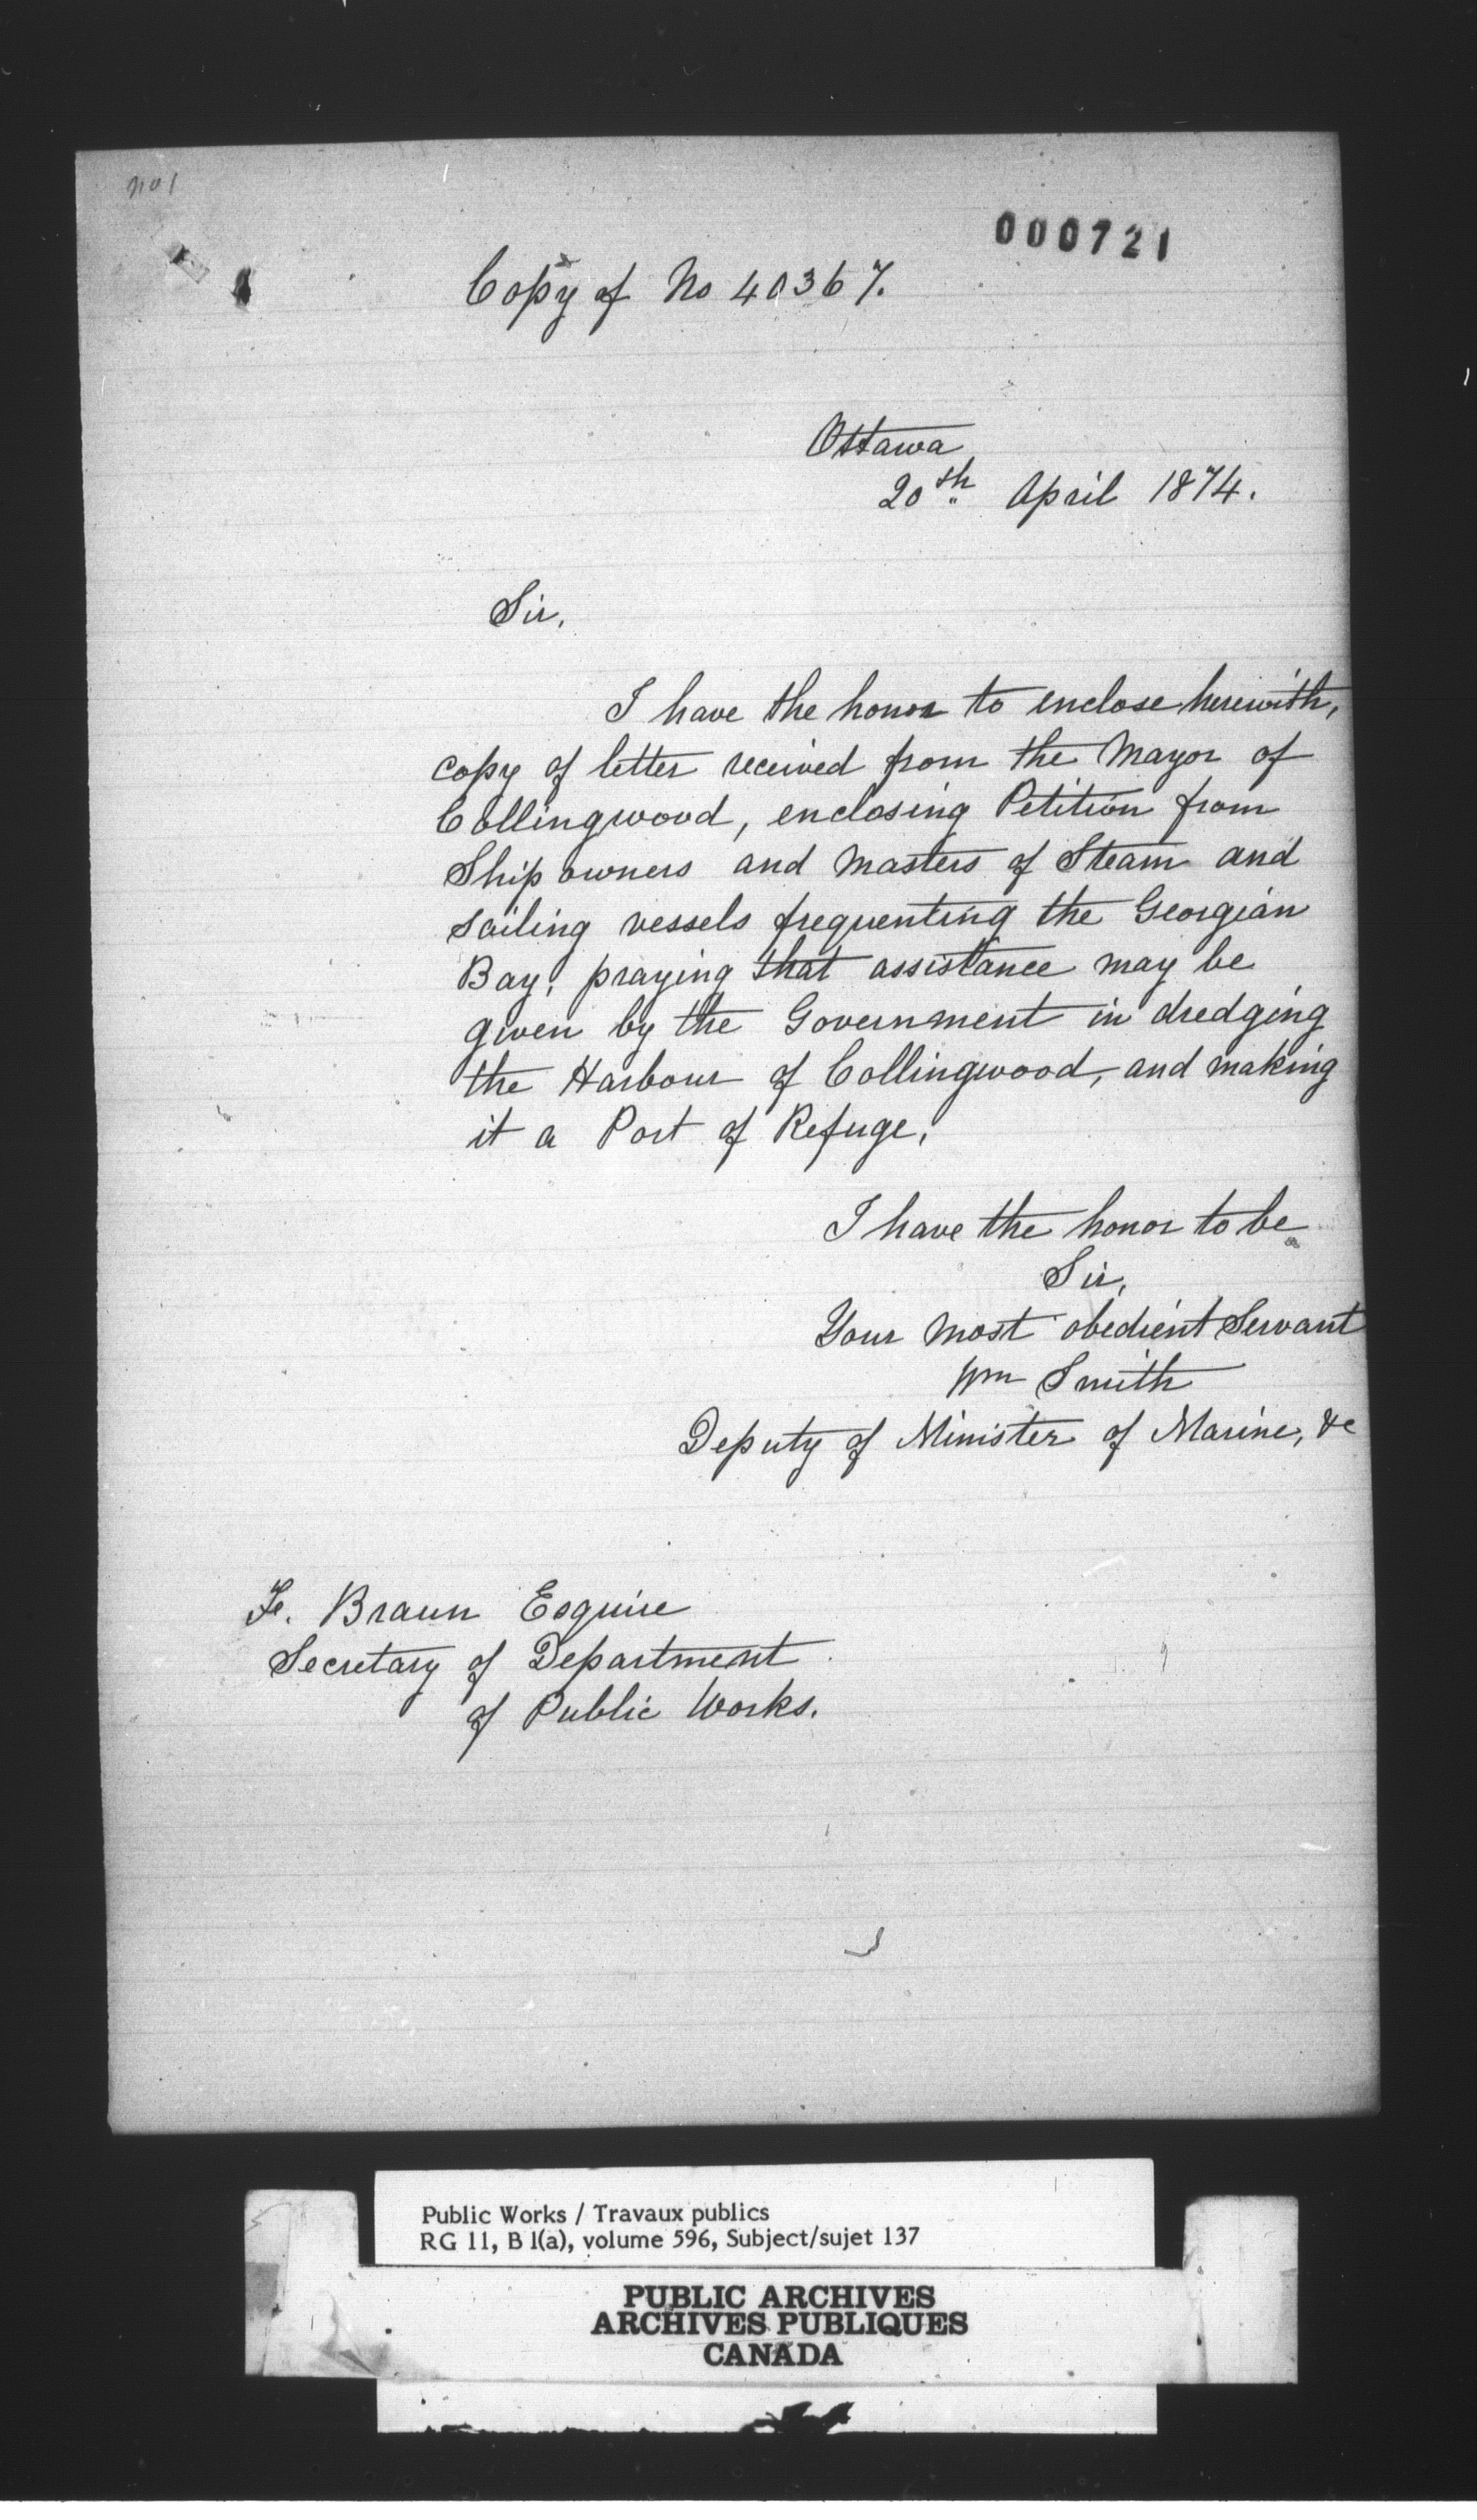 No 1
000721
Copy of No 40367.
Ottawa
20th April 1874.
Sir,
I have the honor to enclose herewith,
copy of letter received from the Mayor of
Collingwood, enclosing Petition from
Ship owners and Masters of Steam and
sailing vessels frequenting the Georgian
Bay, praying that assistance may be
given by the Government in dredging
the Harbour of Collingwood, and making
it a Port of Refuge.
I have the honor to be
Sir,
Your most obedient Servant
Wm Smith
Deputy of Minister of Marine, &c
F. Braun Esquire
Secretary of Department
of Public Works.
Public Works / Travaux publics
RG 11, B 1(a), volume 596, Subject/sujet 137
PUBLIC ARCHIVES
ARCHIVES PUBLIQUES
CANADA